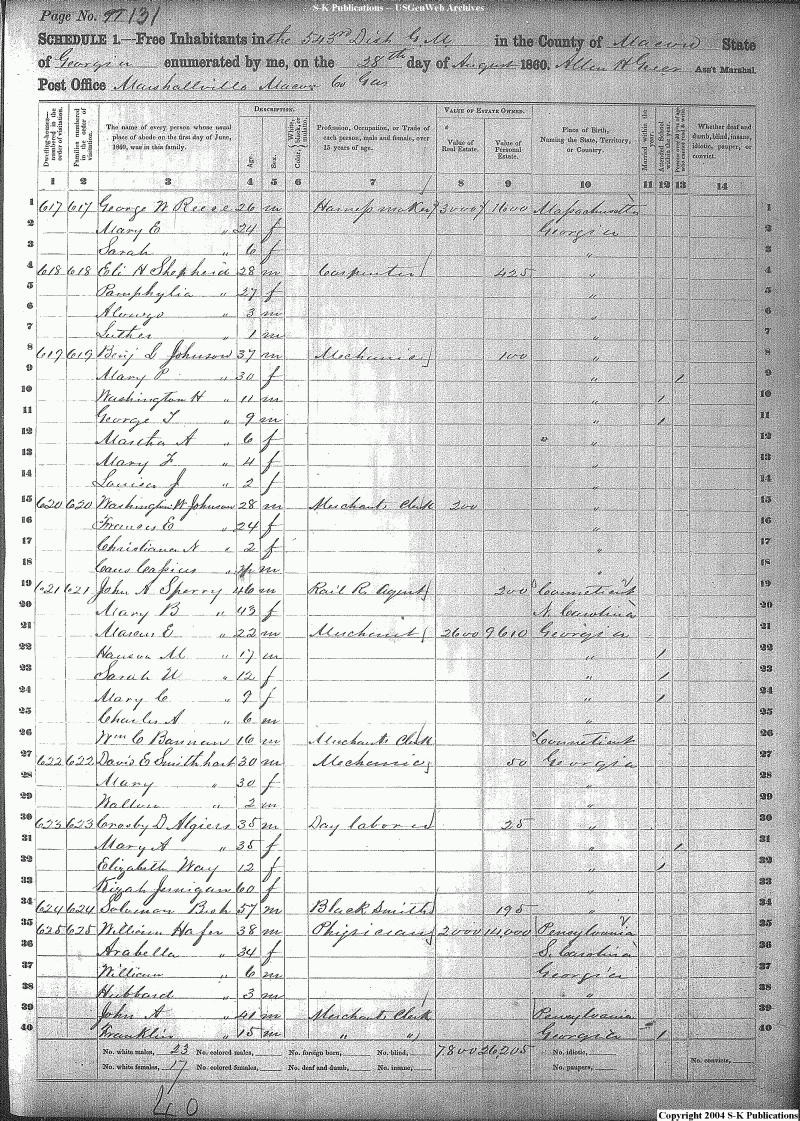 S-K Publications -- USGenWeb Archives
Page No. 97 131
SCHEDULE 1.—Free Inhabitants in the 543rd Dist G. M in the County of Macon State
of Georgia enumerated by me, on the 28th day of August 1860. Allen H Greer Ass't Marshal.
Post Office Marshallville Macon Co Gas
Dwelling-houses—numbered in the order of visitation. Families numbered in the order of visitation. The name of every person whose usual place of abode on the first day of June, 1860, was in this family. DESCRIPTION. Age. Sex. Color, White, black, or mulatto. Profession, Occupation, or Trade of each person, male and female, over 15 years of age. VALUE OF ESTATE OWNED. Value of Real Estate. Value of Personal Estate. Place of Birth, Naming the State, Territory, or Country. Married within the year. Attended School within the year. Whether deaf and dumb, blind, insane, idiotic, pauper, or convict.
1 2 3 4 5 6 7 8 9 10 11 12 13 14
1 617 617 George W Reese 26 m Harness maker 3000 1600 Massachusetts 1
2 Mary E " 24 f Georgia 2
3 Sarah " 6 f " 3
4 618 618 Eli H Shepherd 28 m Carpenter 425 " 4
5 Pamphylia " 27 f " 5
6 Alonzo " 3 m " 6
7 Luther " 1 m " 7
8 619 619 Benj L Johnson 37 m Mechanic 100 " 8
9 Mary P " 30 f " / 9
10 Washington H " 11 m " / 10
11 George T " 9 m " / 11
12 Martha A " 6 f " 12
13 Mary F " 4 f " 13
14 Louisa J " 2 f " 14
15 620 620 Washington W Johnson 28 m Merchants Clerk 200 " 15
16 Frances E " 24 f " 16
17 Christiana N " 2 f " 17
18 Caus Casius " m " 18
19 621 621 John A Sperry 46 m Rail R. Agent 200 Connecticut 19
20 Mary B " 43 f N. Carolina 20
21 Marcus E " 22 m Merchant 2600 9610 Georgia 21
22 Hanson M " 17 m " / 22
23 Sarah U " 12 f " / 23
24 Mary C " 9 f " / 24
25 Charles A " 6 m " 25
26 Wm C Bannan 16 m Merchants Clerk Connecticut 26
27 622 622 David E Smithhart 30 m Mechanic 50 Georgia 27
28 Mary " 30 f " 28
29 Walton " 2 m " 29
30 623 623 Crosby D Algiers 35 m Day laborer 25 " 30
31 Mary A " 35 f " / 31
32 Elizabeth Way 12 f " / 32
33 Kizah Jernigan 60 f " 33
34 624 624 Soloman Bish 57 m Black Smith 195 " 34
35 625 625 William Hafer 38 m Physician 2000 14,000 Pensylvania 35
36 Arabella " 34 f S. Carolina 36
37 William " 6 m Georgia 37
38 Hubbard " 3 m " 38
39 John A " 41 m Merchants Clerk Pensylvania 39
40 Franklin " 15 m " " Georgia / 40
No. white males, 23 No. colored males, No. foreign born, No. blind, 7800 26,205 No. idiotic, No. convicts,
No. white females, 17 No. colored females, No. deaf and dumb, No. insane, No. paupers,
40
Copyright 2004 S-K Publications